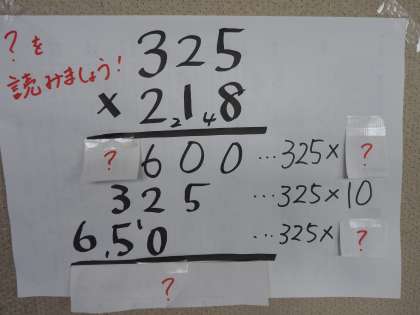 ?を
読みましょう!
325
×218
2 4
?600 …325×?
325 …325×10
1
650 …325×?
?